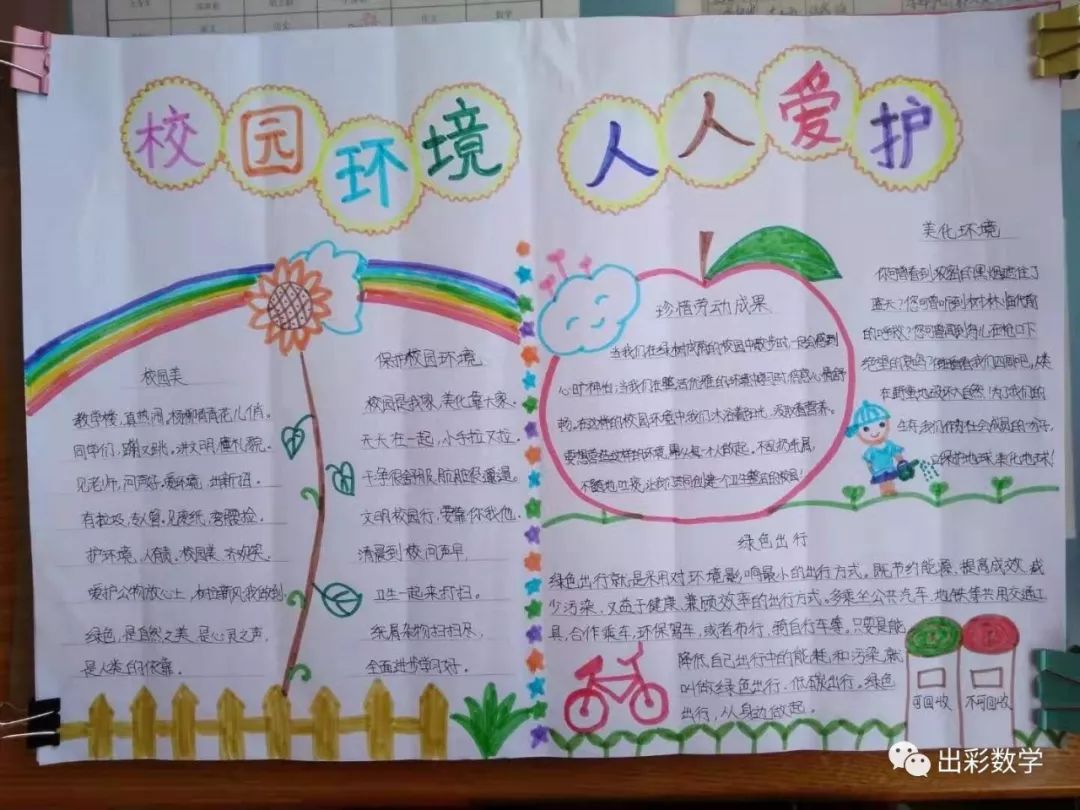 校园环境 人人爱护
校园美
教学楼,真热闹,杨柳青青花儿俏。
同学们,蹦又跳,讲文明,懂礼貌。
见老师,问声好,爱环境,出新招。
有垃圾,专人管,见废纸,弯腰捡。
护环境,人有责,校园美,齐欢笑。
爱护公物放心上,树立新风我做到。
绿色,是自然之美,是心灵之声,
是人类的依靠。
保护校园环境
校园是我家,美化靠大家。
天天在一起,小手拉又拉。
干净很舒服,肮脏很邋遢。
文明校园行,要靠你我他。
清晨到校问声早,
卫生一起来打扫。
纸屑杂物扫扫尽,
全面进步学习好。
珍惜劳动成果
当我们在绿树成荫的校园中散步时,一定会感到
心旷神怡;当我们在整洁优雅的环境中学习时,倍感心情舒
畅。在这样的校园环境中我们沐浴着阳光,汲取着营养。
要想营造这样的环境,需从每一个人做起。不乱扔纸屑,
不随地吐痰,让我们共同创建一个卫生整洁的校园!
美化环境
你可曾看到浓密的黑烟遮住了
蓝天?您可曾听到树林
的呼救?您可曾看到鸟儿在枪口下
绝望的哀鸣?我们四周吧,人类
在野蛮地破坏大自然!为了我们的
生存,我们作为社会成员的一份子,
保护地球,美化地球!
绿色出行
绿色出行就是采用对环境影响最小的出行方式。既节约能源、提高成效、减
少污染、又益于健康、兼顾效率的出行方式。多乘坐公共汽车、地铁等共用交通工
具,合作乘车,环保驾车,或者步行、骑自行车等。只要是能
降低自己出行中的能耗和污染,就
叫做绿色出行、低碳出行。绿色
出行,从身边做起。
可回收
不可回收
出彩数学